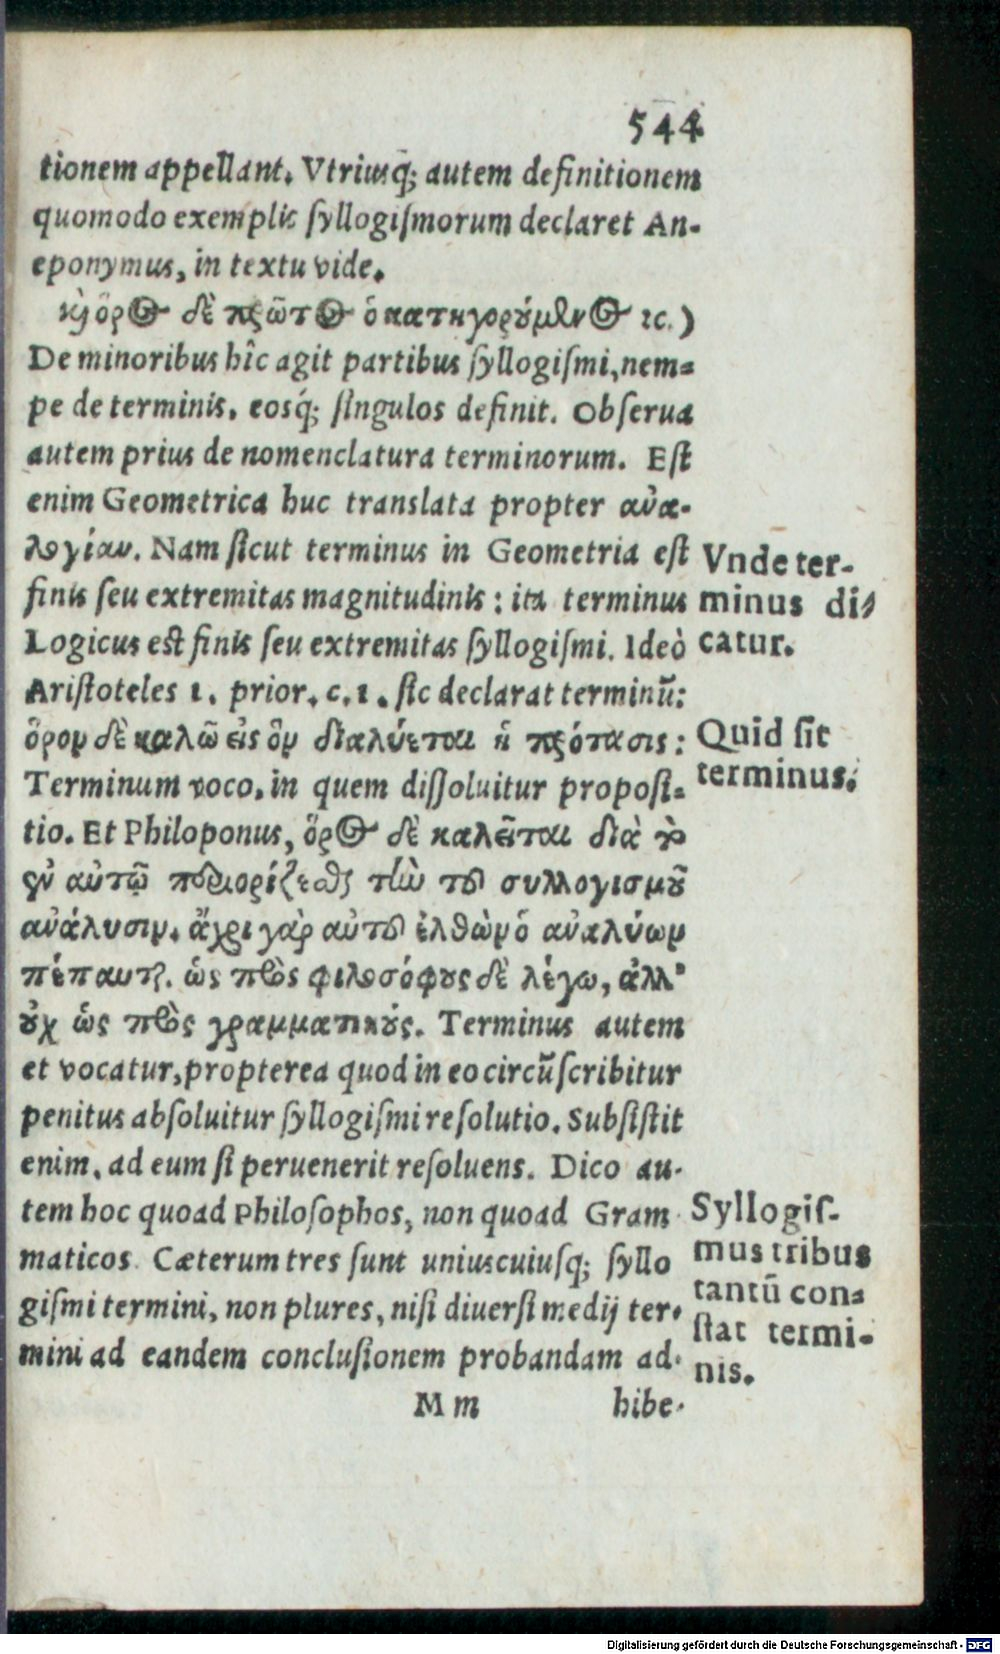 544
tionem appellant. Vtriusq́; autem definitionem
quomodo exemplis ſyllogiſmorum declaret An-
eponymus, in textu vide.
κὶ ὅρος δὲ πρῶτος ὁ κατηγορούμενος ⁊c.)
De minoribus hîc agit partibus ſyllogiſmi, nem-
pe de terminis, eosq́; ſingulos definit. Obſerua
autem prius de nomenclatura terminorum. Eſt
enim Geometrica huc translata propter ἀνα-
λογίαν. Nam ſicut terminus in Geometria eſt
Vnde ter-
finis ſeu extremitas magnitudinis: ita terminus
minus di-
Logicus eſt finis ſeu extremitas ſyllogiſmi. Ideò
catur.
Ariſtoteles 1. prior. c. 1. ſic declarat terminũ:
ὅρον δὲ καλῶ εἰς ὃν διαλύεται ἡ πρότασις:
Quid ſit
Terminum voco, in quem diſſoluitur propoſi-
terminus.
tio. Et Philoponus, ὅρος δὲ καλεῖται διὰ τὸ
ἐν αὐτῷ περιορίζεσθαι τὴν τοῦ συλλογισμοῦ
ἀνάλυσιν. ἄχρι γὰρ αὐτοῦ ἐλθὼν ὁ ἀναλύων
πέπαυται. ὡς πρὸς φιλοσόφους δὲ λέγω, ἀλλ'
οὐχ ὡς πρὸς γραμματικούς. Terminus autem
et vocatur, propterea quod in eo circũſcribitur
penitus abſoluitur ſyllogiſmi reſolutio. Subſiſtit
enim, ad eum ſi peruenerit reſoluens. Dico au-
tem hoc quoad Philoſophos, non quoad Gram
Syllogiſ-
maticos. Cæterum tres ſunt uniuscuiuſq; ſyllo
mus tribus
giſmi termini, non plures, niſi diuerſi medij ter-
tantũ con-
ſtat termi-
mini ad eandem concluſionem probandam ad-
nis.
Mm hibe-
Digitalisierung gefördert durch die Deutsche Forschungsgemeinschaft - DFG